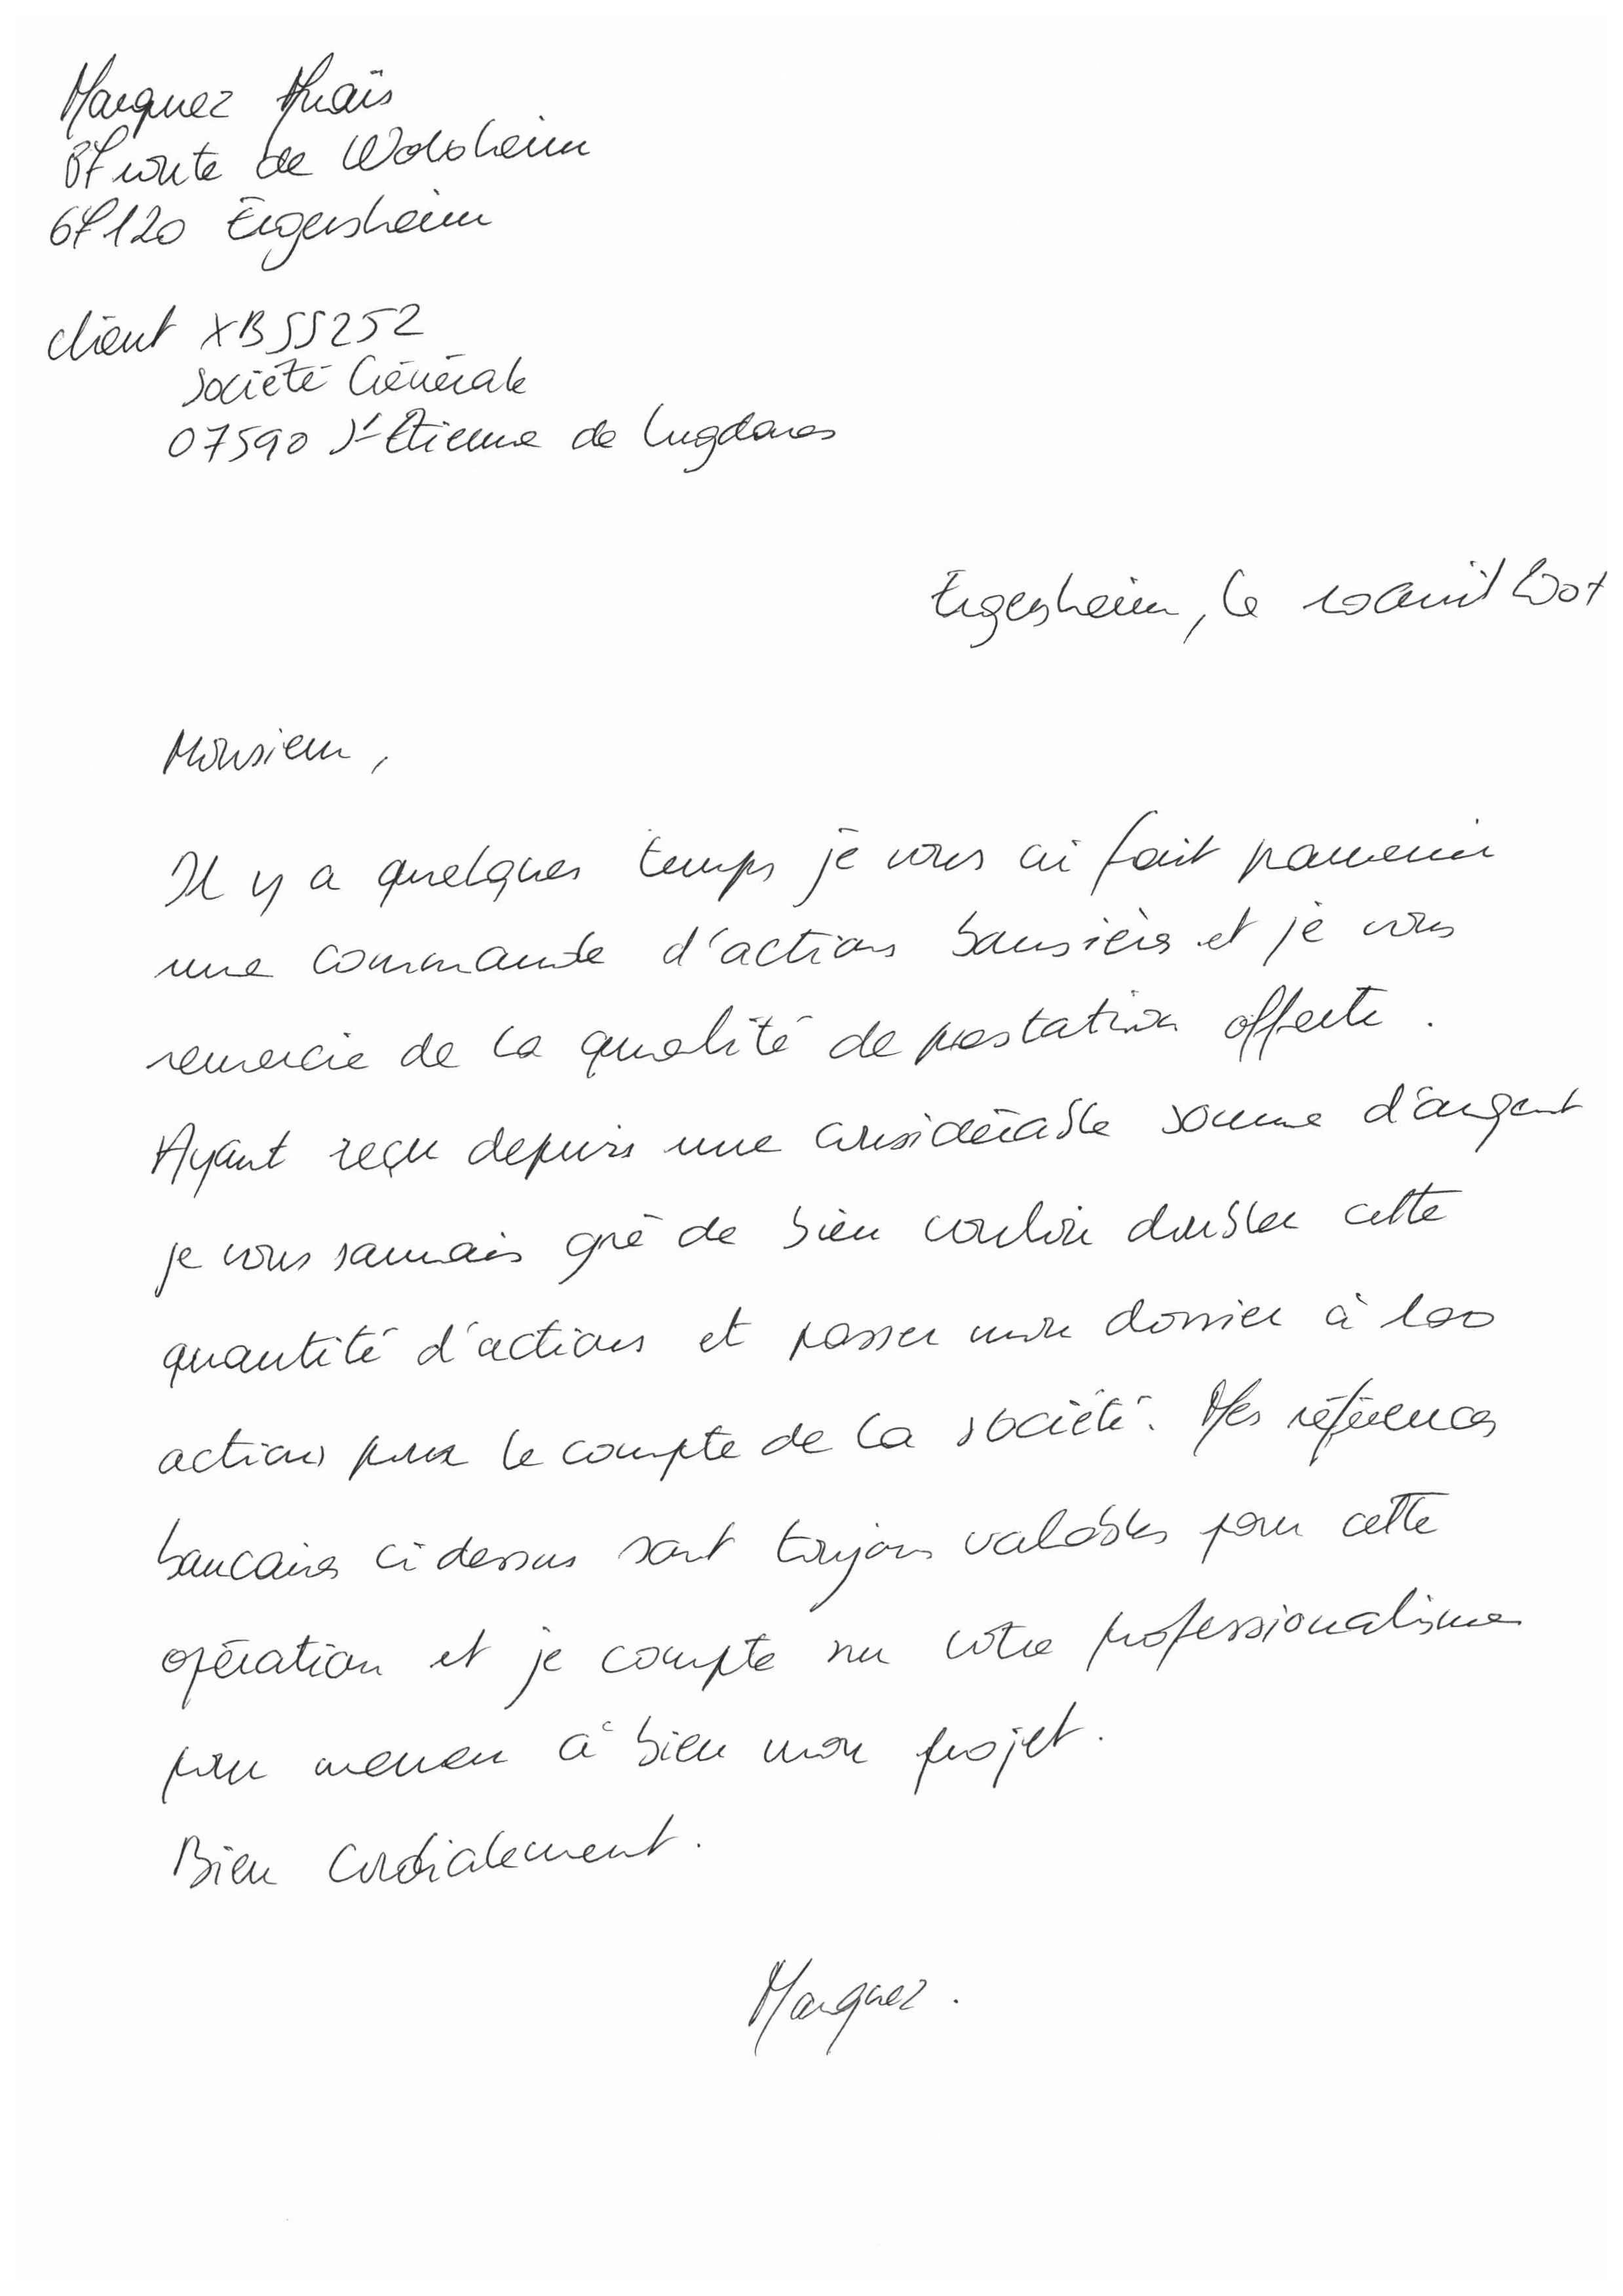 Marquez Anaïs
87 route de Wolxheim
67120 Ergersheim
client XBSS252
Société Générale
07590 St Etienne de Lugdares
Ergersheim, le 10 avril 2007
Monsieur,
Il y a quelques temps je vous ai fait parvenir
une commande d'actions boursières et je vous
remercie de la qualité de prestation offerte.
Ayant reçu depuis une considérable somme d'argent
je vous saurais gré de bien vouloir doubler cette
quantité d'actions et passer mon dossier à 100
actions pour le compte de la société. Mes références
bancaires ci dessus sont toujours valables pour cette
opération et je compte sur votre professionnalisme
pour mener à bien mon projet.
Bien Cordialement.
Marquez.